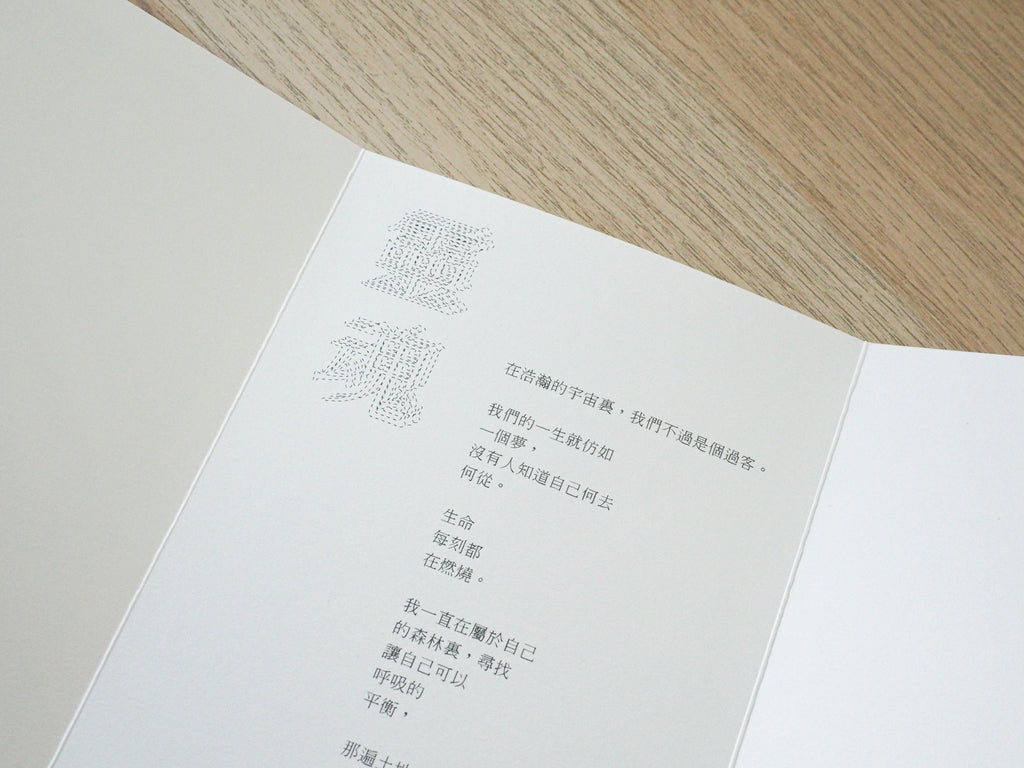 靈
魂
在浩瀚的宇宙裏，我們不過是個過客。
我們的一生就仿如
一個夢，
沒有人知道自己何去
何從。
生命
每刻都
在燃燒。
我一直在屬於自己
的森林裏，尋找
讓自己可以
呼吸的
平衡，
那遍土地